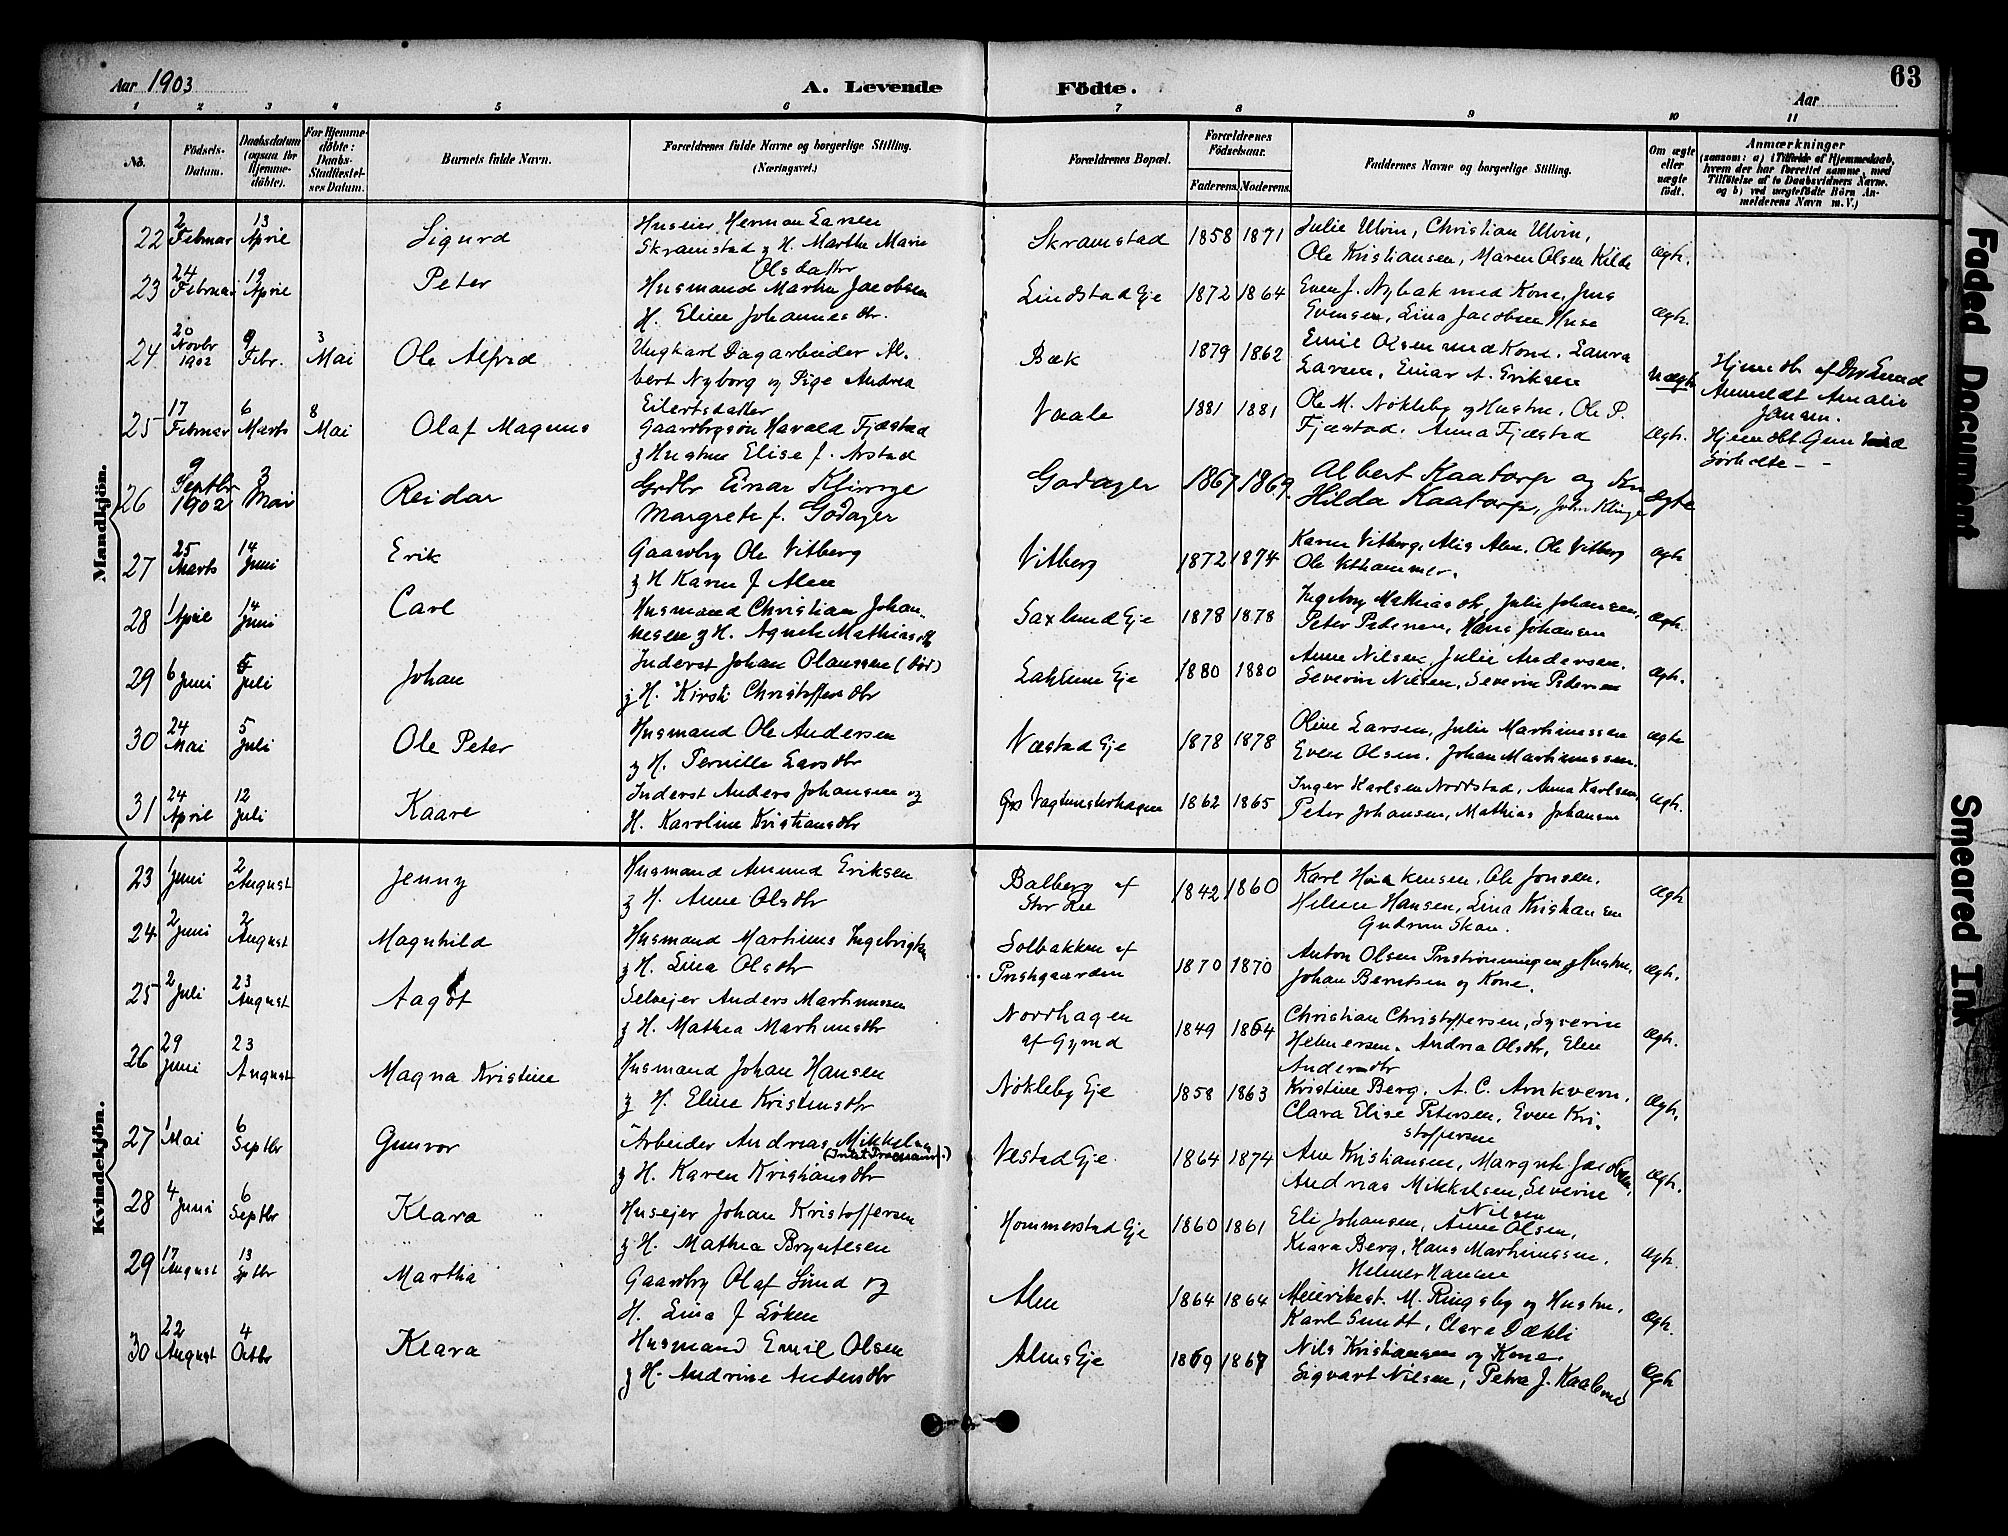 Aar 1903
A. Levende Födte.
63
Aar
1 2 3 4 5 6 7 8 9 10 11
No.
Födsels-Datum.
Daabsdatum (ogsaa for Hjemme-döbte).
For Hjemme-döbte: Daabs-Stadfæstel-ses Datum.
Barnets fulde Navn.
Forældrenes fulde Navne og borgerlige Stilling. (Næringsvei.)
Forældrenes Bopæl.
Forældrenes Födselsaar.
Faderens. Moderens.
Faddernes Navne og borgerlige Stilling.
Om ægte eller uægte födt.
Anmærkninger
(saasom: a) i Tilfælde af Hjemmedaab, hvem der har forrettet samme, med Tilföielse af to Daabsvidners Navne, og b) ved uægtefödte Börn An-melderens Navn m. V.)
Mandkjön.
22 2 Februar 13 April Sigurd Huseier Herman Larsen
Skramstad og H. Marthe Marie
Olsdatter
Skramstad 1858 1871 Julie Ulvin, Christian Ulvin,
Ole Kristiansen, Maren Olsen Kilde
Ægte.
23 24 Februar 19 April Peter Husmand Martin Jacobsen
H. Eline Johannesdtr.
Lindstad Eje 1872 1864 Even J. Nybak med Kone, Jens
Evensen, Lina Jacobsen Huse
Ægte.
24 20 Novbr 1902 9 Febr. 3 Mai Ole Alfrid Ungkarl Dagarbeider Al-
bert Nyborg og Pige Andrea
Eilertsdatter
Bæk 1879 1862 Emil Olsen med Kone, Laura
Larsen, Einar A. Eriksen
Uægte
Hjemdbt af Lund
Anmeldt Amalie
Jensen.
25 17 Februar 6 Marts 8 Mai Olaf Magnus
Gaardbrgsön Harald Fjæstad
og Hustru Elise f. Arstad
Vaale 1881 1881 Ole M. Nökleby og Hustru, Ole P.
Fjæstad, Anna Fjæstad
Ægte.
Hjemdbt
26 9 Septbr 1902 3 Mai Reidar Grdbr Einar Klinge
Margrete f. Godager
Godager 1867 1869 Albert Kaatorp og
Hilda Kaatorp, John Klinge
Ægte
27 25 Marts 14 Juni Erik Gaardbr Ole Vitberg
og H Karen f Alen
Vitberg 1872 1874 Karen Vitberg, Alis Alen, Ole Vitberg
Ole
Ægte
28 1 April 14 Juni Carl Husmand Christian Johan-
nesen og H. Agnete Mathiasdtr
Saxlund Eje 1878 1878 Ingeborg Mathiasdtr, Julie Johansen,
Peter Pedersen, Hans Johansen
Ægte.
29 6 Juni 5 Juli Johan Inderst Johan Olaussen (död)
og H. Kirsti Christoffersdtr
Eje 1880 1880 Anne Nilsen, Julie Andersen,
Severin Nilsen, Severin Pedersen
Ægte.
30 24 Mai 5 Juli Ole Peter Husmand Ole Andersen
og H. Pernille Larsdtr
Næstad Eje 1878 1878 Oline Larsen, Julie Martinussen
Even Olsen, Johan Martinussen.
Ægte
31 24 April 12 Juli Kaare Inderst Anders Johansen og
H. Karoline Kristiansdtr
1862 1865 Inger Karlsen Nordstad, Anna Karlsen,
Peter Johansen, Mathias Johansen
Ægte.
Kvindekjön.
23 1 Juni 2 August Jenny Husmand Amund Eriksen
og H. Anne Olsdtr
Balberg af
Stor Ree
1842 1860 Karl Haakensen, Ole Jonsen,
Helene Hansen, Lina Kristiansen
Gudrun Skau.
Ægte
24 2 Juni 2 August Magnhild Husmand Martinus Ingebrigts
og H. Lina Olsdtr
Solbakken af
Prestgaarden
1870 1870 Anton Olsen og Hustru,
Johan Berntsen og Kone.
Ægte.
25 2 Juli 23 August Aagot Selvejer Anders Martinussen
og H. Mathea Martinusdtr
Nordhagen
af Gymd
1849 1864 Christian Christoffersen, Syverine
Helmersen, Andrea Olsdtr, Elen
Andersdtr
Ægte.
26 29 Juni 23 August Magna Kristine Husmand Johan Hansen
og H. Eline Kristensdtr
Nökleby Eje 1858 1863 Kristine Berg, A. C. Arnkvern,
Clara Elise Petersen, Even Kri-
stoffersen
Ægte.
27 1 Mai 6 Septbr Gunvor Arbeider Andreas Mikkelsen
og H. Karen Kristiansdtr
Vestad Eje 1864 1874 Ane Kristiansen, Margrete Jacobsen,
Andreas Mikkelsen, Severine
Nilsen
Ægte.
28 4 Juni 6 Septbr Klara Husejer Johan Kristoffersen
og H. Mathea Bryntesen
Hommerstad Eje 1860 1861 Eli Johansen, Anne Olsen,
Klara Berg, Hans Martinussen,
Helmer Hansen
Ægte.
29 17 August 13 Sptbr Martha Gaardbr Olaf Lund og
H. Lina f Löken
Alen 1864 1864 Meieribest. M. Ringsby og Hustru,
Karl Smidt, Clara Dæhli
Ægte.
30 22 August 4 Octbr Klara Husmand Emil Olsen
og H. Andrine Andersdtr
Alens Eje 1869 1867 Nils Kristiansen og Kone.
Sigvart Nilsen, Petra J. Kaalsrud
Ægte
Faded Document
Smeared Ink